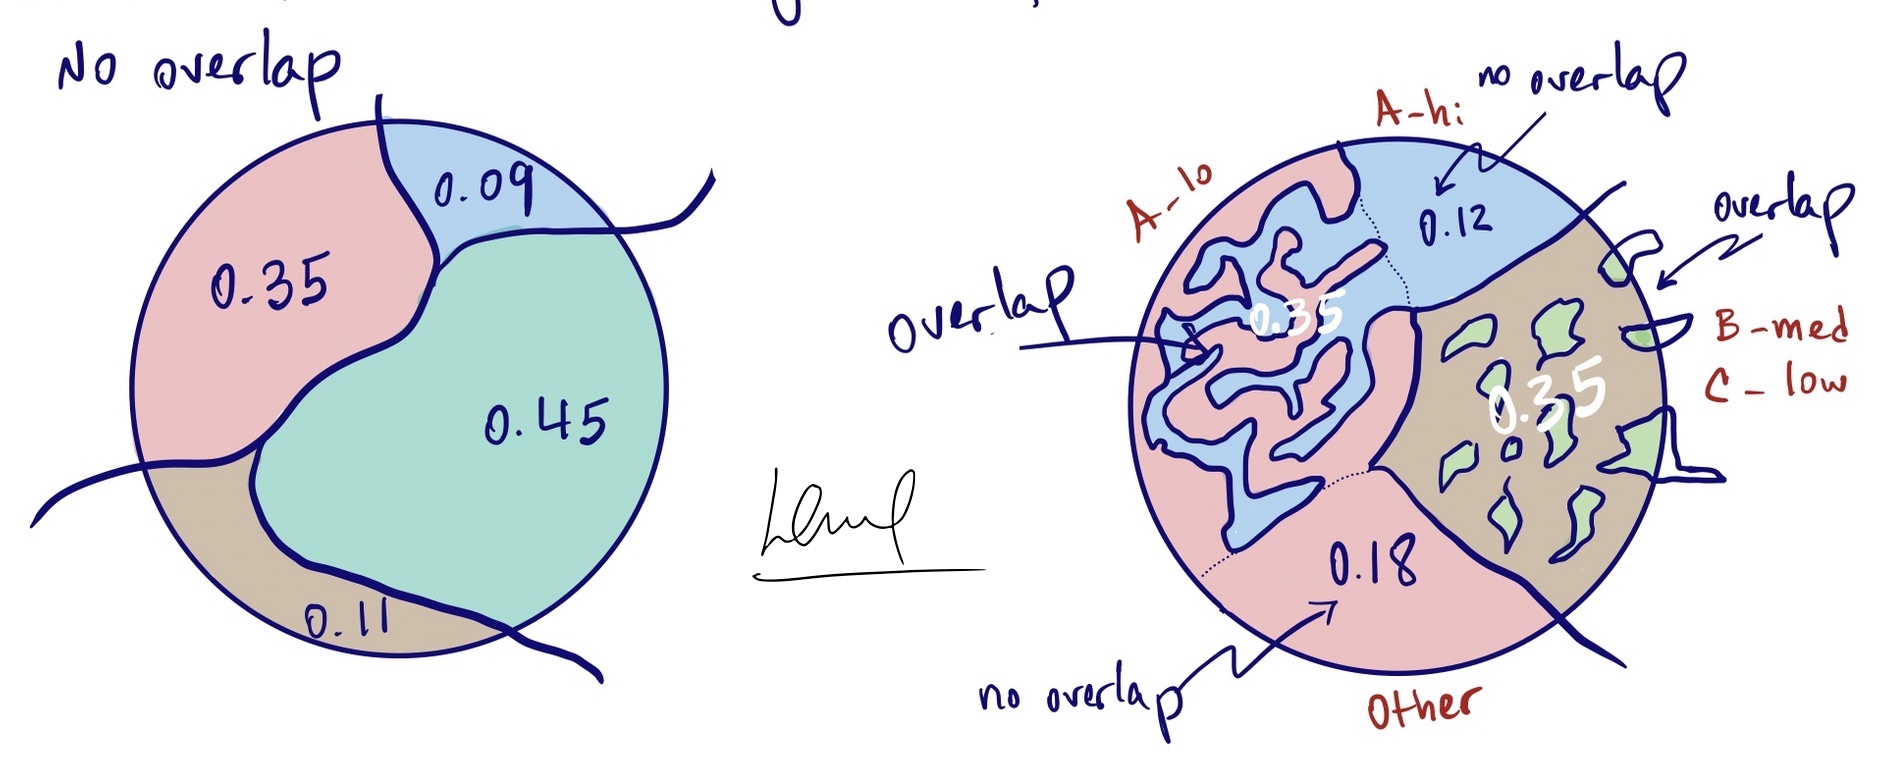 No overlap
0.09
0.35
0.45
0.11
no overlap
A-hi
A-lo
0.12
overlap
overlap
0.35
B-med
C-low
0.35
0.18
no overlap
Other